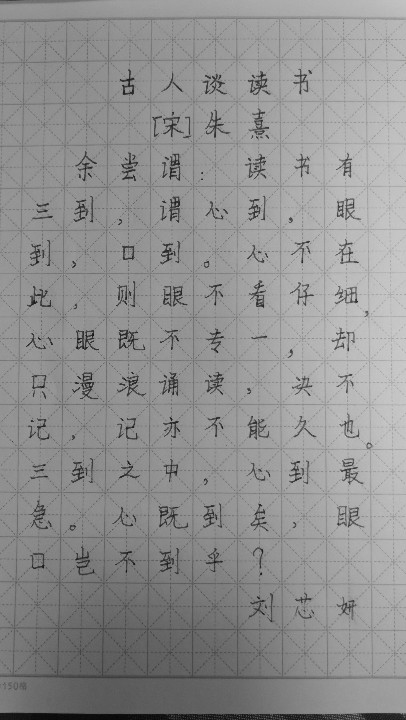 古人谈读书
[宋]朱熹
余尝谓：读书有
三到，谓心到，眼
到，口到。心不在
此，则眼不看仔细，
心眼既不专一，却
只漫浪诵读，决不
记，记亦不能久也。
三到之中，心到最
急。心既到矣，眼
口岂不到乎？
刘芯妍